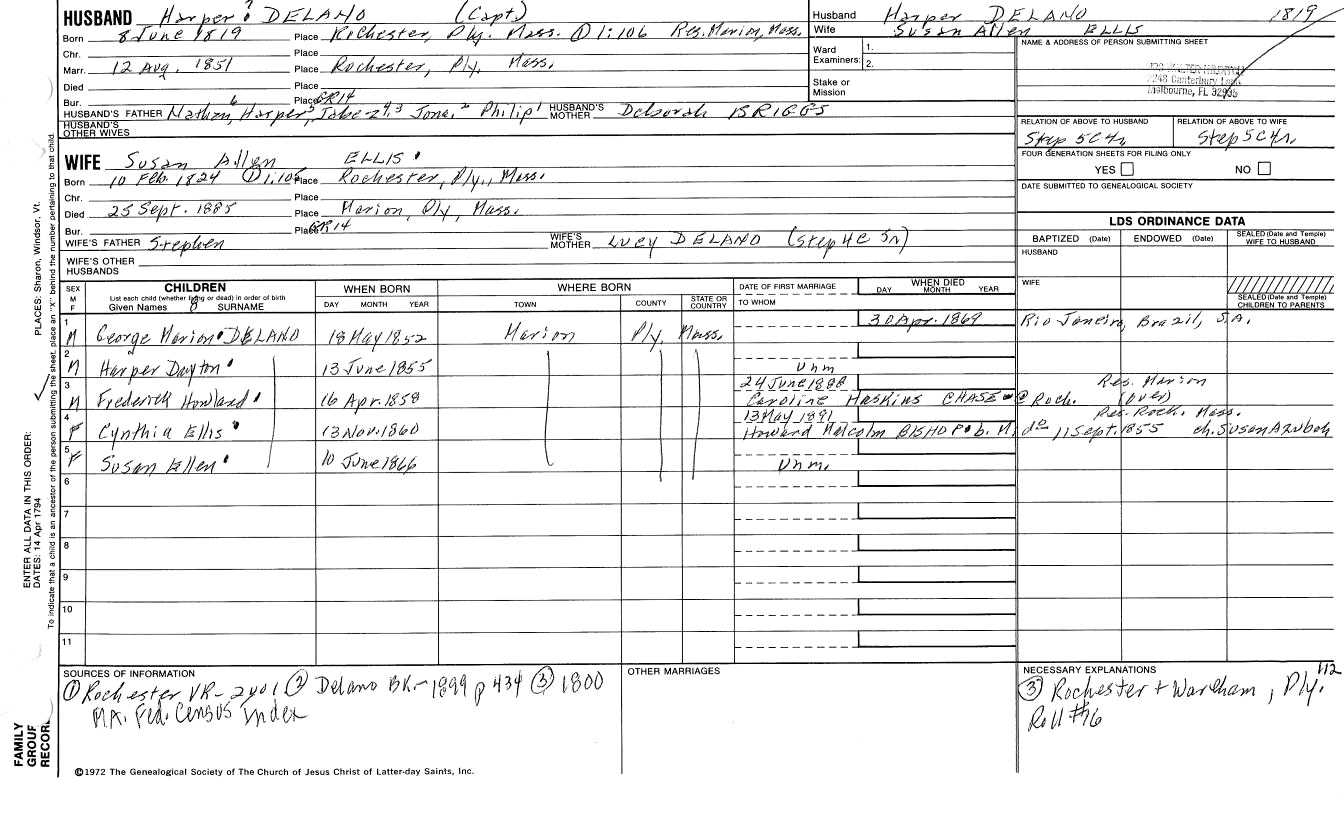 HUSBAND Harper 7 DELANO (Capt)
Born 8 June 1819 Place Rochester, Ply. Mass. ① 1:106 Res. Marion, Mass.
Chr. Place
Marr. 12 Aug. 1851 Place Rochester, Ply, Mass.
Died Place
Bur. Place GR14
HUSBAND'S FATHER Nathan, 6 Harper, 5 Jabez 4,3 Jona. 2 Philip 1 HUSBAND'S MOTHER Deborah BRIGGS
HUSBAND'S OTHER WIVES
Husband Harper DELANO 1819
Wife Susan Allen ELLIS
Ward Examiners: 1.
2.
Stake or Mission
NAME & ADDRESS OF PERSON SUBMITTING SHEET
Melbourne, FL 32935
RELATION OF ABOVE TO HUSBAND RELATION OF ABOVE TO WIFE
Step 5C4r. Step 5C4r.
FOUR GENERATION SHEETS FOR FILING ONLY
YES NO
DATE SUBMITTED TO GENEALOGICAL SOCIETY
WIFE Susan Allen ELLIS
Born 10 Feb. 1824 ① 1:106 Place Rochester, Ply., Mass.
Chr. Place
Died 25 Sept. 1885 Place Marion, Ply, Mass.
Bur. Place GR14
WIFE'S FATHER Stephen WIFE'S MOTHER Lucy DELANO (Step 4C 5r)
WIFE'S OTHER HUSBANDS
LDS ORDINANCE DATA
BAPTIZED (Date) ENDOWED (Date) SEALED (Date and Temple) WIFE TO HUSBAND
HUSBAND
WIFE
SEALED (Date and Temple) CHILDREN TO PARENTS
SEX M F
CHILDREN
List each child (whether living or dead) in order of birth
Given Names 8 SURNAME
WHEN BORN
DAY MONTH YEAR
WHERE BORN
TOWN COUNTY STATE OR COUNTRY
DATE OF FIRST MARRIAGE
TO WHOM
WHEN DIED
DAY MONTH YEAR
1 M George Marion DELANO 18 May 1852 Marion Ply. Mass. 30 Apr. 1869 Rio Janeiro, Brazil, S.A.
2 M Harper Dayton 13 June 1855 Unm
3 M Frederick Howland 16 Apr. 1858 24 June 1888 Caroline Haskins CHASE @ Roch. Res. Marion (over)
4 F Cynthia Ellis 13 Nov. 1860 13 May 1891 Howard Malcolm BISHOP b. M, do 11 Sept. 1855 Res. Roch. Mass. ch. Susan Azubah
5 F Susan Ellen 10 June 1866 Unm.
6
7
8
9
10
11
SOURCES OF INFORMATION
① Rochester VR - 2401 ② Delano BK. - 1899 p 434 ③ 1800
MA. Fed. Census Index
OTHER MARRIAGES
NECESSARY EXPLANATIONS 112
③ Rochester + Wareham, Ply.
Roll #16
©1972 The Genealogical Society of The Church of Jesus Christ of Latter-day Saints, Inc.
FAMILY GROUP RECORD
ENTER ALL DATA IN THIS ORDER:
DATES: 14 Apr 1794
PLACES: Sharon, Windsor, Vt.
To indicate that a child is an ancestor of the person submitting the sheet, place an "X" behind the number pertaining to that child.